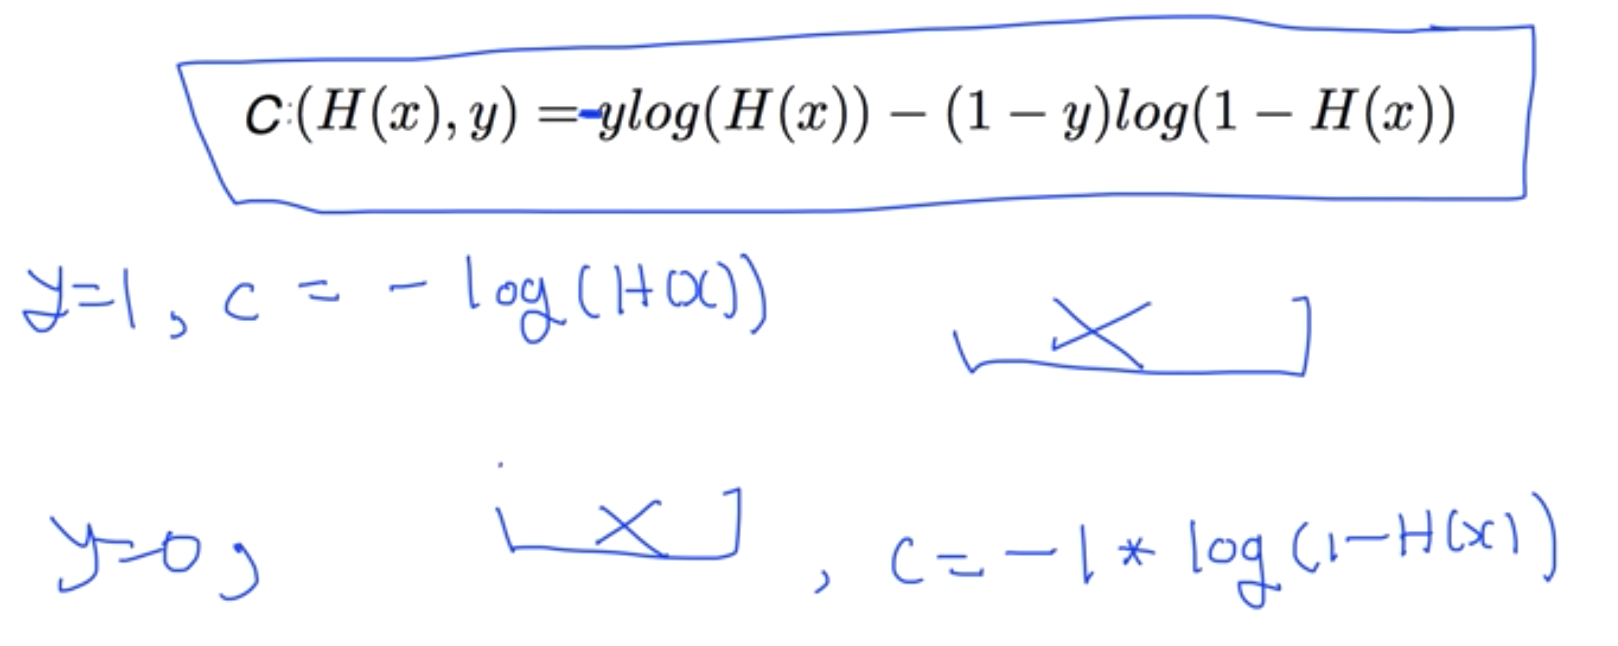 C:(H(x), y) = -ylog(H(x)) − (1 − y)log(1 − H(x))
y=1, c = - log(H(x))
y=0, , c = -1 * log(1-H(x))